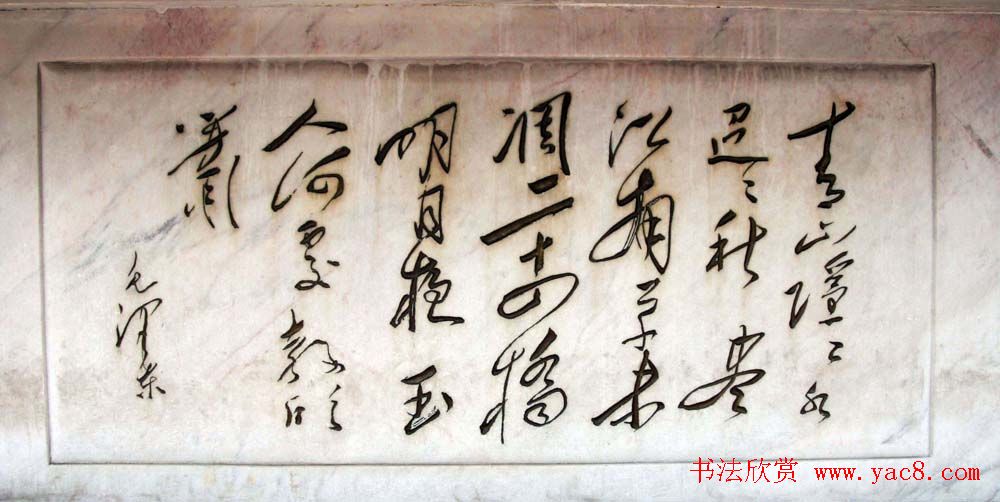 青山隱〻水
迢〻秋盡
江南草未
凋二十四橋
明月夜玉
人何處教吹
簫
毛澤東
书法欣赏 www.yac8.com